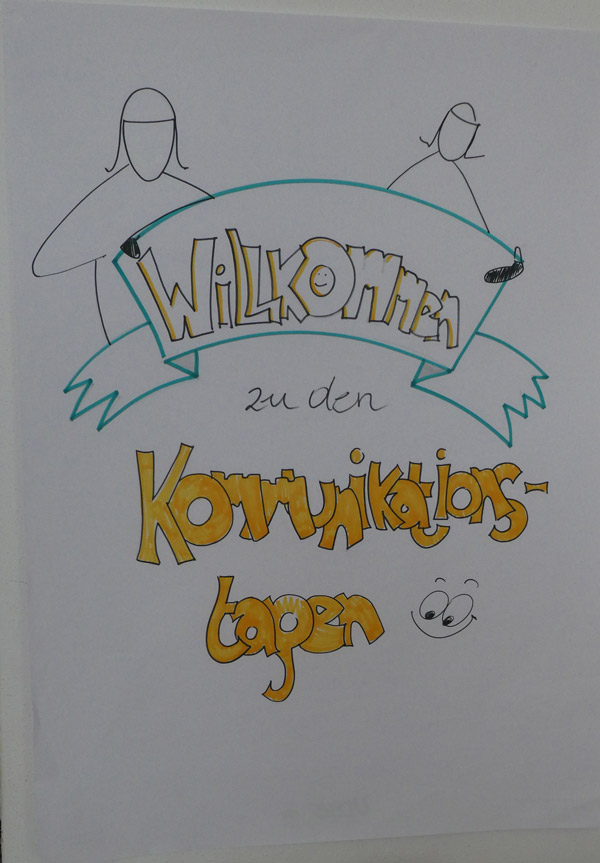 WiLLKOMMen
zu den
Kommunikations-
tagen